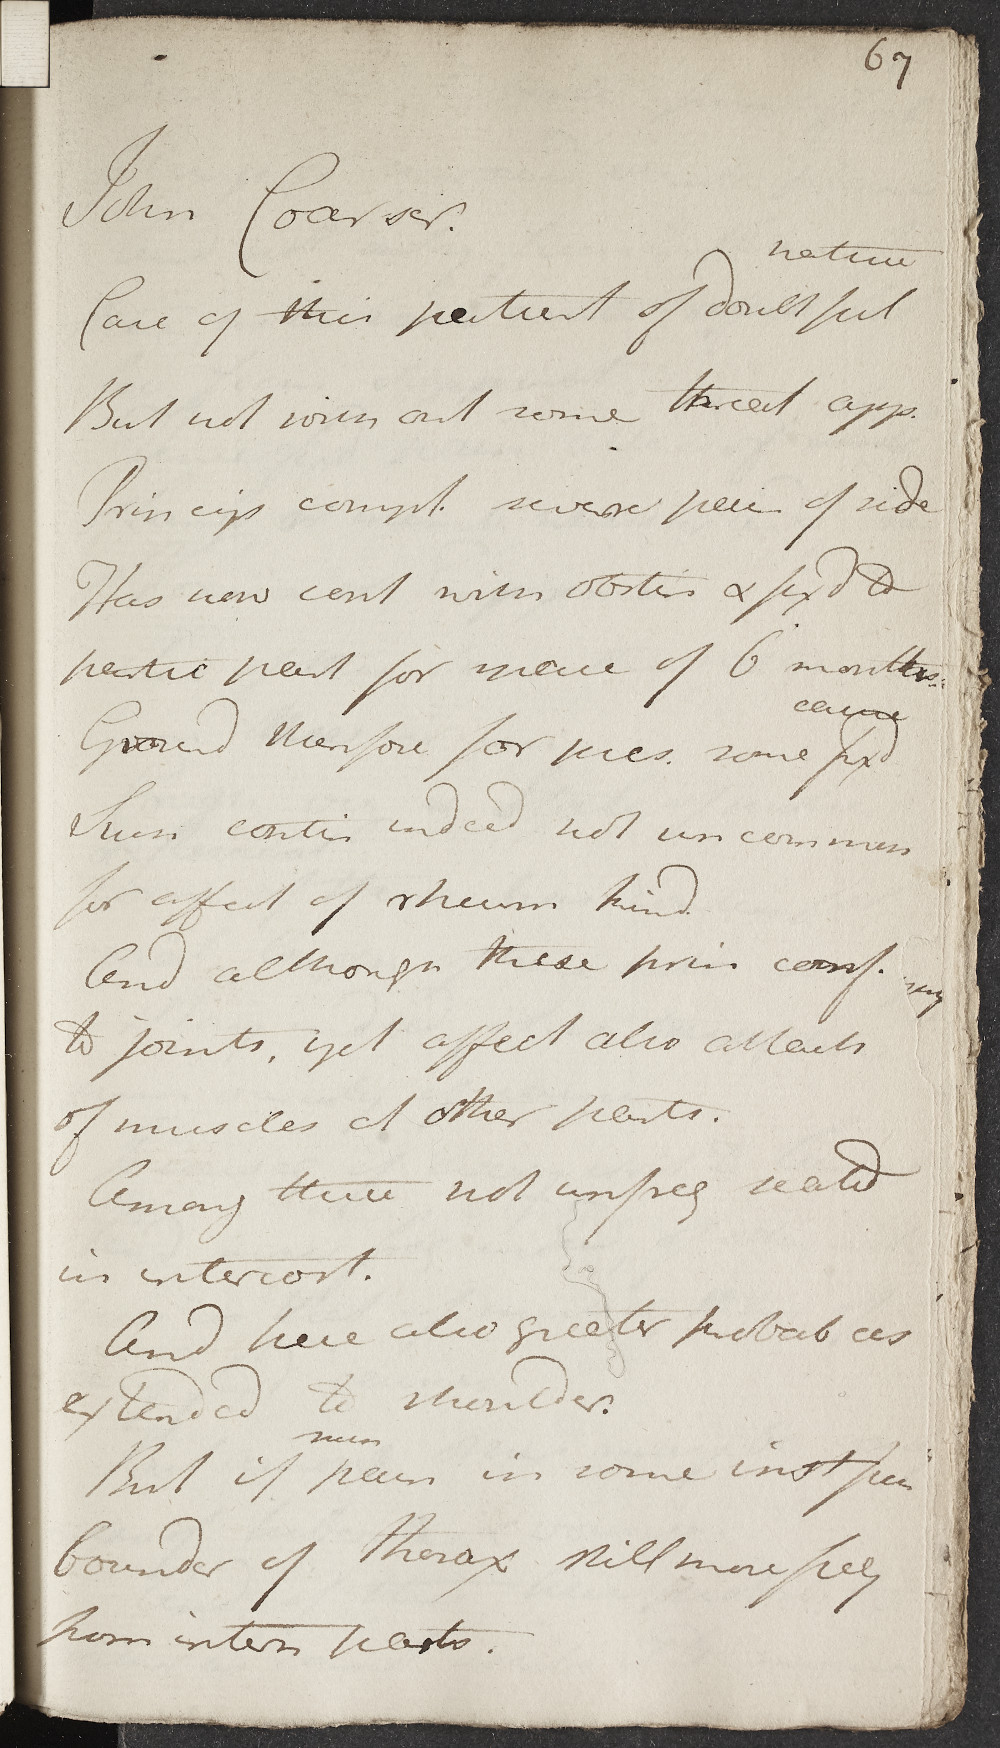 67
John Coarser.
nature
Case of this patient of doubtful
But not without some threat app.
Princip compt. severe pain of side
Has now cont with obstin & fixd to
partic part for space of 6 months.
cause
Ground therefore for pres. some fixd
Such contin indeed not uncommon
for affect of rheum kind
And although these prin conf.
to joints, yet affect also attack
of muscles at other parts.
Among these not unfreq seated
in intercost.
And here also greater probab as
extended to shoulder.
musc
But if pain in some inst from
bounder of thorax still more freq
from intern parts.